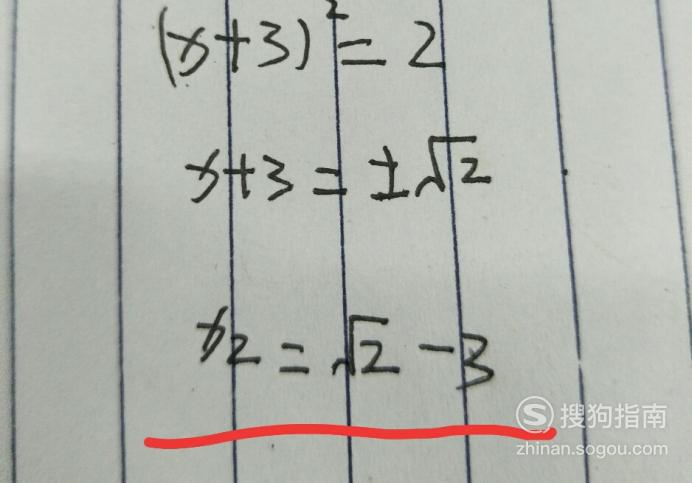 (x+3)² = 2
x+3 = ±√2
x₂ = √2 - 3
S 搜狗指南
zhinan.sogou.com